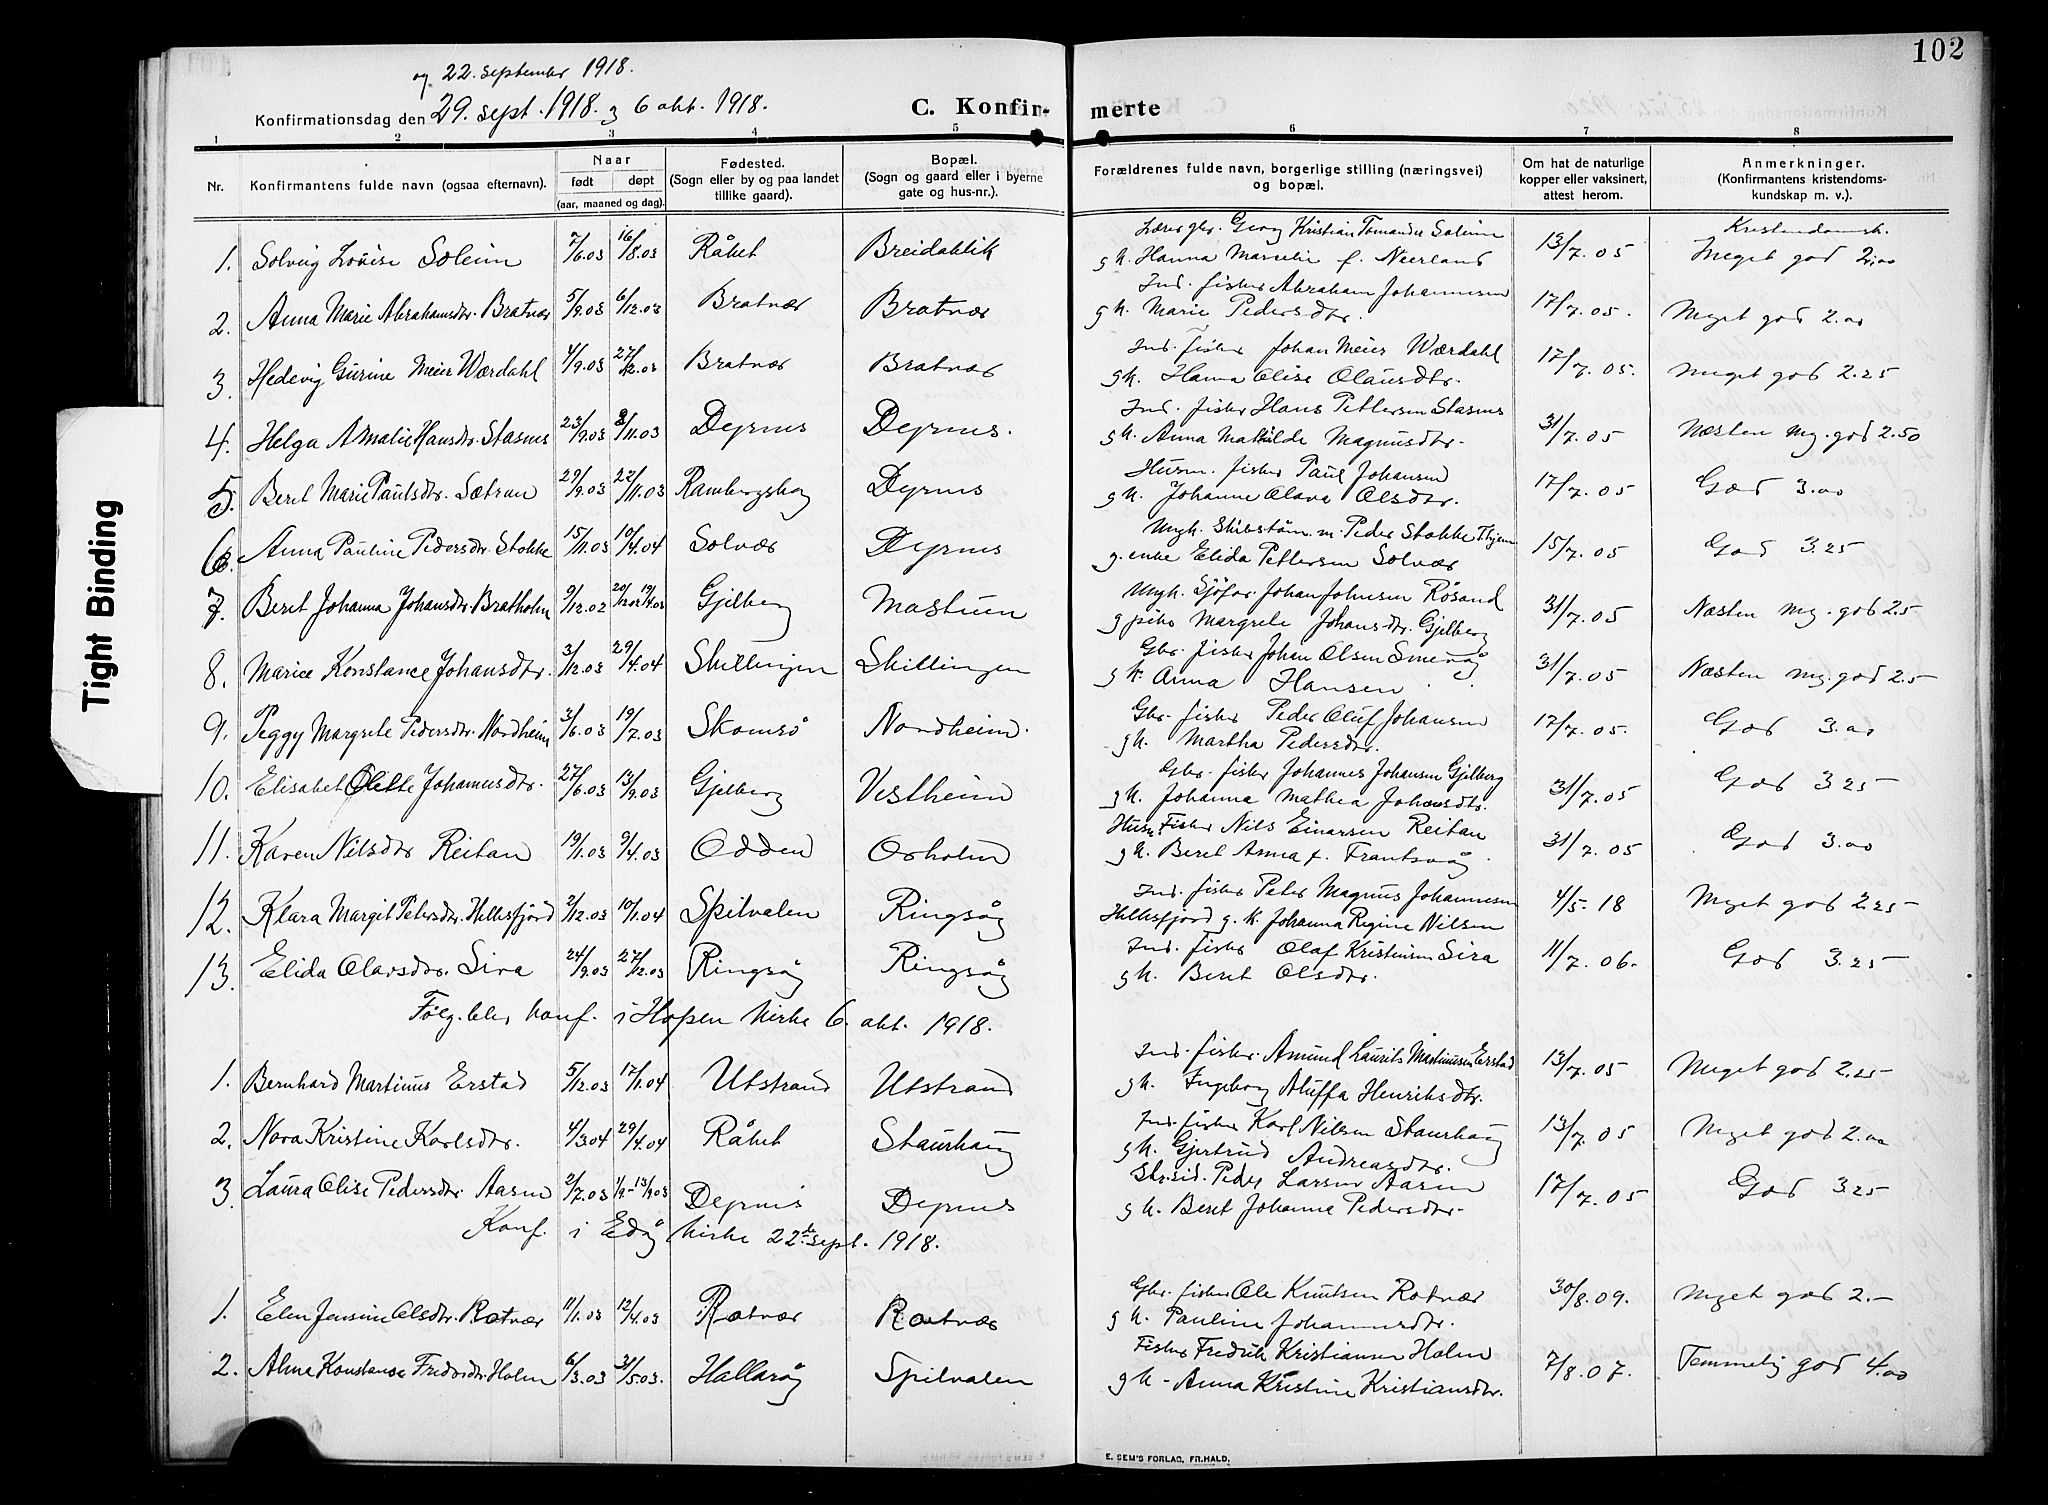 102
og 22. september 1918.
Konfirmationsdag den 29. sept. 1918. og 6 okt. 1918.
C. Konfir-merte
1 2 3 4 5 6 7 8
Nr.
Konfirmantens fulde navn (ogsaa efternavn).
Naar
født døpt
(aar, maaned og dag).
Fødested.
(Sogn eller by og paa landet
tillike gaard).
Bopæl.
(Sogn og gaard eller i byerne
gate og hus-nr.).
Forældrenes fulde navn, borgerlige stilling (næringsvei)
og bopæl.
Om hat de naturlige
kopper eller vaksinert,
attest herom.
Anmerkninger.
(Konfirmantens kristendoms-
kundskap m. v.).
1. Solveig Lovise Soleim 7/6.03 16/8.03 Råket Breidablik Lærer gbr. Georg Kristian Tomander Soleim
g k. Hanna Marselie f. Neerland 13/7.05 Kristendomsk. Meget god 2.00
2. Anna Marie Abrahamsdtr. Bratvær 5/9.03 6/12.03 Bratvær Bratvær Ind. fisker Abraham Johannesen
g k. Marie Pedersdtr. 17/7.05. Meget god 2.00
3. Hedevig Gurine Meier Wærdahl 4/9.03 27/12.03 Bratvær Bratvær Ind. fisker Johan Meier Wærdahl
g k. Hanna Olise Olausdtr. 17/7.05. Meget god 2.25
4. Helga Amalie Hansdtr. Stasnes 23/9.03 8/11.03 Dyrnes Dyrnes. Ind. fisker Hans Pettersen Stasnes
g k. Anna Mathilde Magnusdtr. 31/7.05 Næsten mg. god 2.50
5. Beret Marie Paulsdtr. Sætran 29/9.03 22/11.03 Rambergshog Dyrnes Husm. fisker Paul Johansen
g k. Johanne Olava Olsdtr. 17/7.05 God 3.00
6. Anna Pauline Pedersdtr. Stokke 15/11.03 10/4.04 Solvær Dyrnes Ungk. Skibstøm. m. Peder Stokke Thjem
g. enke Elida Pettersen Solvær 15/7.05 God 3.25
7. Beret Johanna Johansdtr. Bratholm 9/12.02 20/12.02 19/4.03 Gjelberg Mastuen Ungk. Sjøfar. Johan Johnsen Røsand
g pike Margrete Johansdtr. Gjelberg 31/7.05 Næsten mg. god 2.5
8. Marie Konstance Johansdtr. 3/12.03 29/4.04 Skillingen Skillingen Gbr. fisker Johan Olsen Smevåg
g k. Anna Hansen 31/7.05 Næsten mg. god 2.5
9. Peggy Margrete Pedersdtr. Nordheim 3/6.03 19/7.03 Skomsø Nordheim. Gbr. fisker Peder Oluf Johansen
g k. Martha Pedersdtr. 17/7.05. God 3.00
10. Elisabet Olette Johannesdtr. 27/6.03 13/9.03 Gjelberg Vestheim Gbr. fisker Johannes Johansen Gjelberg
g k. Johanna Mathea Johansdtr. 31/7.05 God 3.25
11. Karen Nilsdtr Reitan 19/1.03 9/4.03 Odden Orholm Husm. Fisker Nils Einarsen Reitan
g k. Beret Anna f. Frantsvåg 31/7.05 God 3.00
12. Klara Margit Petersdtr. Hellesfjord 2/12.03 10/1.04 Spilvalen Ringsøg Ind. fisker Peter Magnus Johannesen
Hellesfjord g. k. Johanna Regine Nilsen 4/5.18 Meget god 2.25
13. Elida Olavsdtr. Sira 24/9.03 27/12.03 Ringsøg Ringsøg Ind. fisker Olaf Kristensen Sira
g k. Beret Olsdtr. 11/7.06. God 3.25
Følg. blev konf. i Hopen kirke 6. okt. 1918.
1. Bernhard Martinus Erstad 5/12.03 17/1.04 Utstrand Utstrand Ind. fisker Amund Laurits Martinusen Erstad
g k. Ingeborg Aluffa Henriksdtr. 13/7.05 Meget god 2.25
2. Nora Kristine Karlsdtr. 4/3.04 29/4.04 Råket Staurhaug Ind. fisker Karl Nilsen Staurhaug
g k. Gjertrud Andreasdtr. 13/7.05 Meget god 2.00
3. Laura Olise Pedersdtr Aasen 2/7.03 1/9-13/9.03 Dyrnes Dyrnes Str.sid. Peder Larsen Aasen
g k. Beret Johanna Pedersdtr. 17/7.05 God 3.25
Konf. i Edøy kirke 22de sept. 1918.
1. Elen Jensine Olsdtr. Rotvær 11/1.03 12/4.03 Rotvær Rotvær Gbr. fisker Ole Knutsen Rotvær
g k. Pauline Johannesdtr. 30/8.09. Meget god 2.-
2. Alma Konstanse Fredriksdtr. Holm 6/3.03 31/5.03. Hallarøy Spilvalen Fisker Fredrik Kristiansen Holm
g k. Anna Kristine Kristiansdtr. 7/8.07. Temmelig god 4.00
E. SEM'S FORLAG, FR.HALD.
Tight Binding